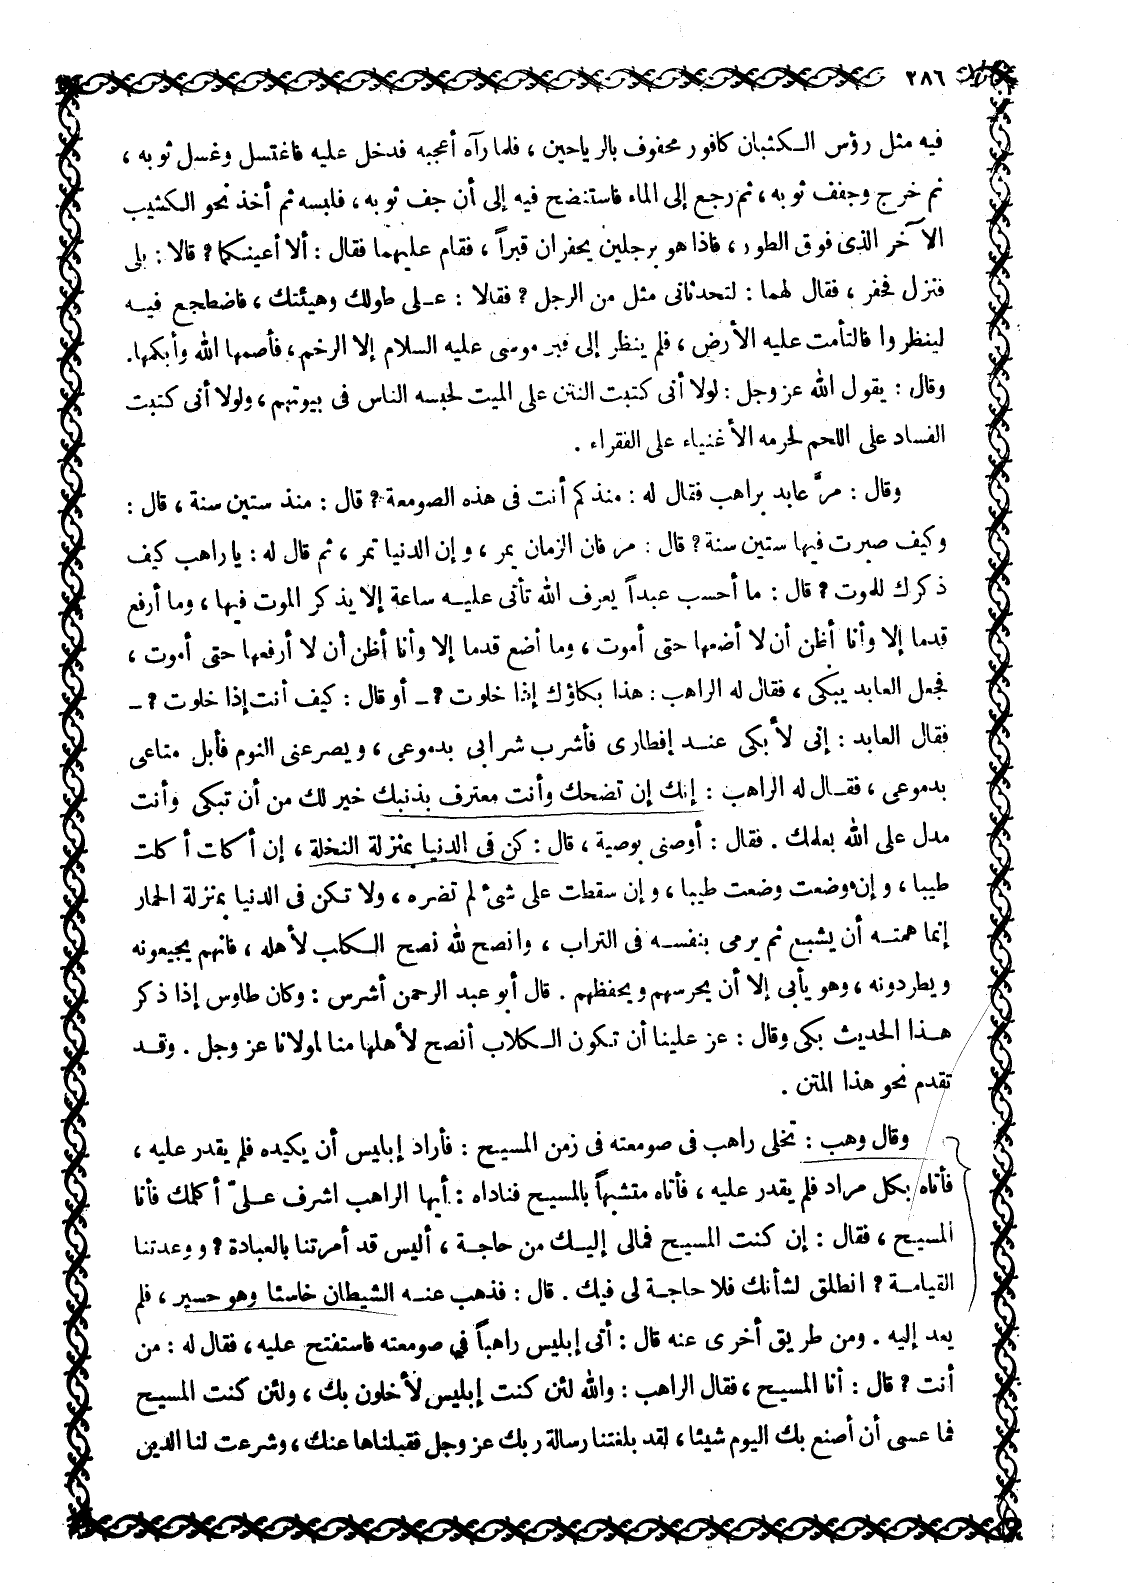 ٢٨٦
فيه مثل رؤس الكثبان كافور محفوف بالرياحين ، فلما رآه أعجبه فدخل عليه فاغتسل وغسل ثوبه ،
ثم خرج وجفف ثوبه ، ثم رجع إلى الماء فاستنضح فيه إلى أن جف ثوبه ، فلبسه ثم أخذ نحو الكثيب
الآخر الذى فوق الطور ، فاذا هو برجلين يحفران قبراً ، فقام عليهما فقال : ألا أعينكما ? قالا : بلى
فنزل فحفر ، فقال لهما : لتحدثانى مثل من الرجل ? فقالا : على طولك وهيئتك ، فاضطجع فيه
لينظروا فالتأمت عليه الأرض ، فلم ينظر إلى قبر موسى عليه السلام إلا الرخم ، فأصمها الله وأبكمها.
وقال : يقول الله عز وجل : لولا أنى كتبت النتن على الميت لحبسه الناس فى بيوتهم ، ولولا أنى كتبت
الفساد على اللحم لحرمه الأغنياء على الفقراء .
وقال : مرَّ عابد براهب فقال له : منذ كم أنت فى هذه الصومعة ? قال : منذ ستين سنة ، قال :
وكيف صبرت فيها ستين سنة ? قال : مر فان الزمان يمر ، وإن الدنيا تمر ، ثم قال له : يا راهب كيف
ذكرك للموت ? قال : ما أحسب عبداً يعرف الله تأتى عليه ساعة إلا يذكر الموت فيها ، وما أرفع
قدما إلا وأنا أظن أن لا أضعها حتى أموت ، وما أضع قدما إلا وأنا أظن أن لا أرفعها حتى أموت ،
فجعل العابد يبكى ، فقال له الراهب : هذا بكاؤك إذا خلوت ? ـ أو قال : كيف أنت إذا خلوت ? ـ
فقال العابد : إنى لأبكى عند إفطارى فأشرب شرابى بدموعى ، ويصرعنى النوم فأبل متاعى
بدموعى ، فقال له الراهب : إنك إن تضحك وأنت معترف بذنبك خير لك من أن تبكى وأنت
مدل على الله بعملك . فقال : أوصنى بوصية ، قال : كن فى الدنيا بمنزلة النخلة ، إن أكلت أكلت
طيبا ، وإن وضعت وضعت طيبا ، وإن سقطت على شئ لم تضره ، ولا تكن فى الدنيا بمنزلة الحمار
إنما همته أن يشبع ثم يرمى بنفسه فى التراب ، وانصح لله نصح الكلب لأهله ، فانهم يجيعونه
ويطردونه ، وهو يأبى إلا أن يحرسهم ويحفظهم . قال أبو عبد الرحمن أشرس : وكان طاوس إذا ذكر
هذا الحديث بكى وقال : عز علينا أن تكون الكلاب أنصح لأهلها منا لمولانا عز وجل . وقد
تقدم نحو هذا المتن .
وقال وهب : تخلى راهب فى صومعته فى زمن المسيح : فأراد إبليس أن يكيده فلم يقدر عليه ،
فأتاه بكل مراد فلم يقدر عليه ، فأتاه متشبهاً بالمسيح فناداه : أيها الراهب اشرف علىّ أكلمك فأنا
المسيح ، فقال : إن كنت المسيح فمالى إليك من حاجة ، أليس قد أمرتنا بالعبادة ? ووعدتنا
القيامة ? انطلق لشأنك فلا حاجة لى فيك . قال : فذهب عنه الشيطان خاسئا وهو حسير ، فلم
يعد إليه . ومن طريق أخرى عنه قال : أتى إبليس راهباً فى صومعته فاستفتح عليه ، فقال له : من
أنت ? قال : أنا المسيح ، فقال الراهب : والله لئن كنت إبليس لأخلون بك ، ولئن كنت المسيح
فما عسى أن أصنع بك اليوم شيئا ، لقد بلغتنا رسالة ربك عز وجل فقبلناها عنك ، وشرعت لنا الدين